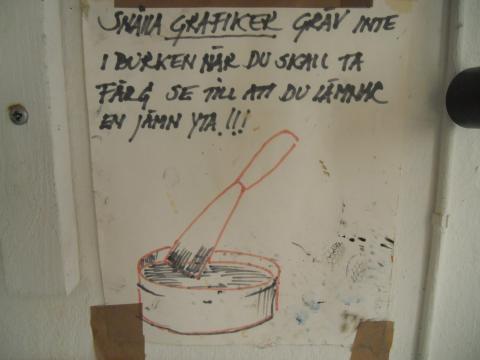 SNÄLLA GRAFIKER GRÄV INTE
I BURKEN NÄR DU SKALL TA
FÄRG SE TILL ATT DU LÄMNAR
EN JÄMN YTA!!!